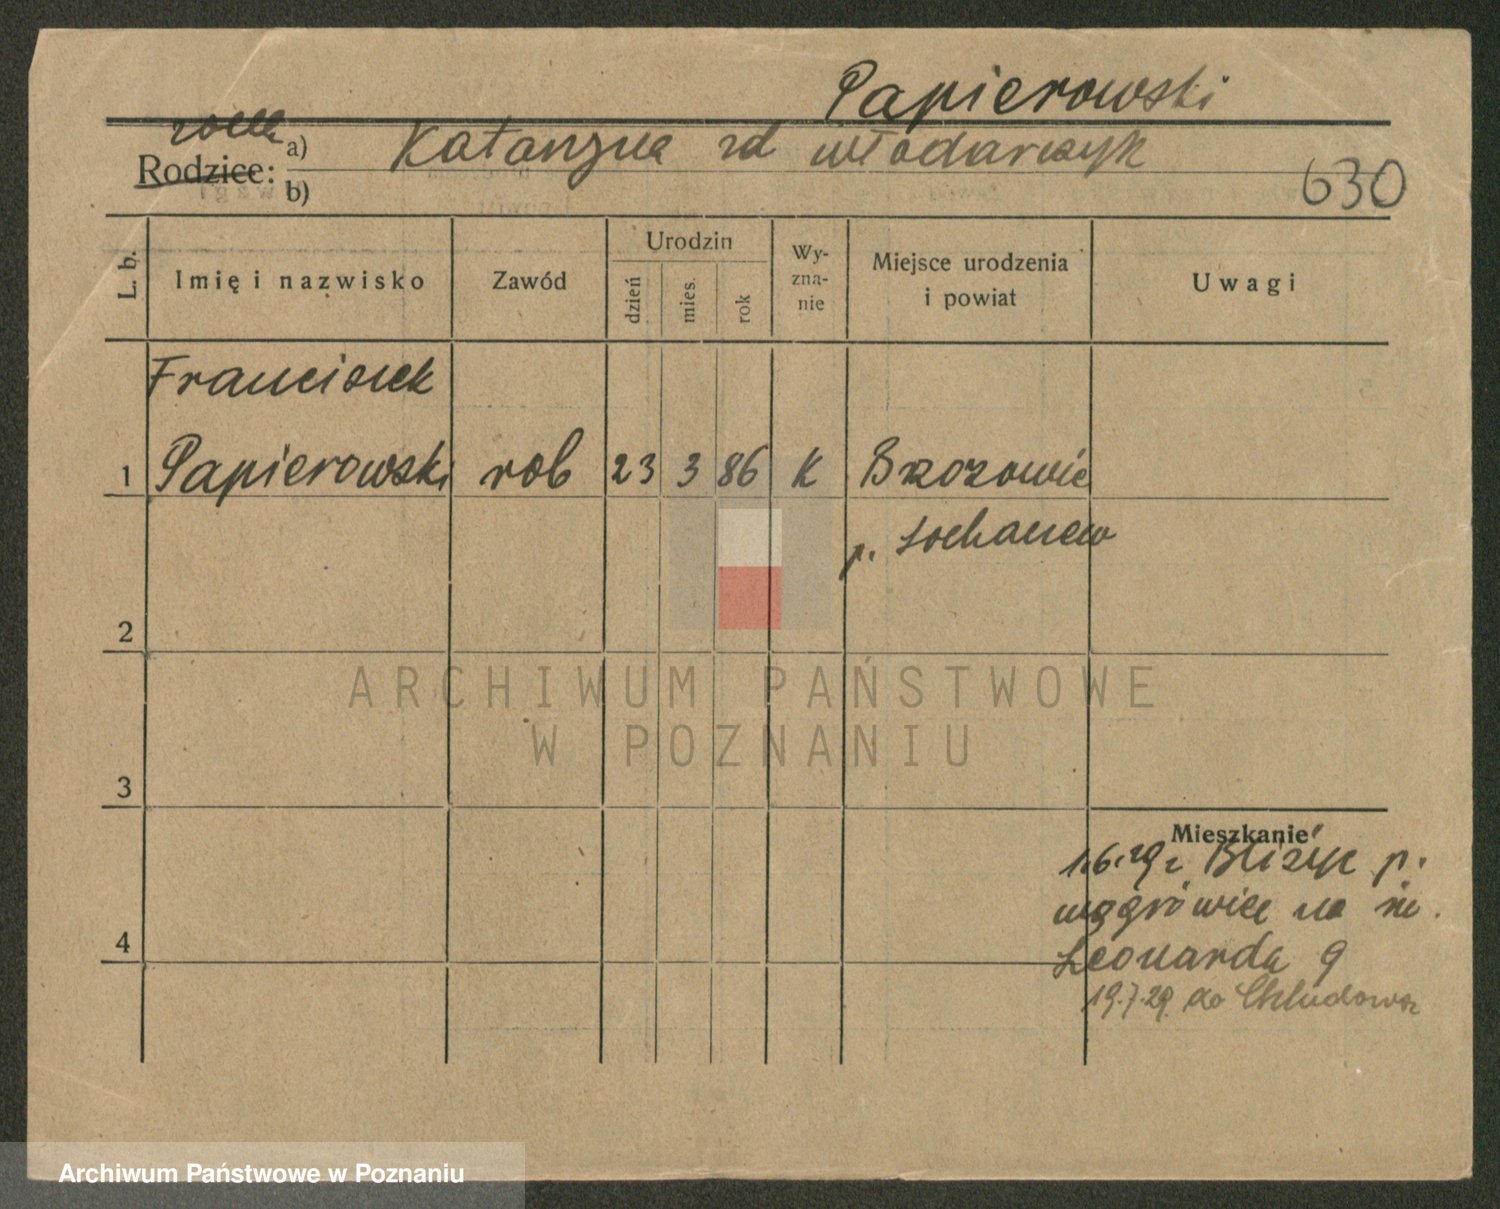 Papierowski
żona a) Katarzyna zd Włodarczyk
Rodzice: b)
630
L. b.
Imię i nazwisko
Zawód
Urodzin
dzień
mies.
rok
Wy-
zna-
nie
Miejsce urodzenia
i powiat
Uwagi
Franciszek
1 Papierowski rob 23 3 86 K
p. Sochaczew
2
3
4
Mieszkanie
1.6.29 p.
wągrówiec na
Leonarda 9
19.7.29. do Chludowa
ARCHIWUM PAŃSTWOWE
W POZNANIU
Archiwum Państwowe w Poznaniu